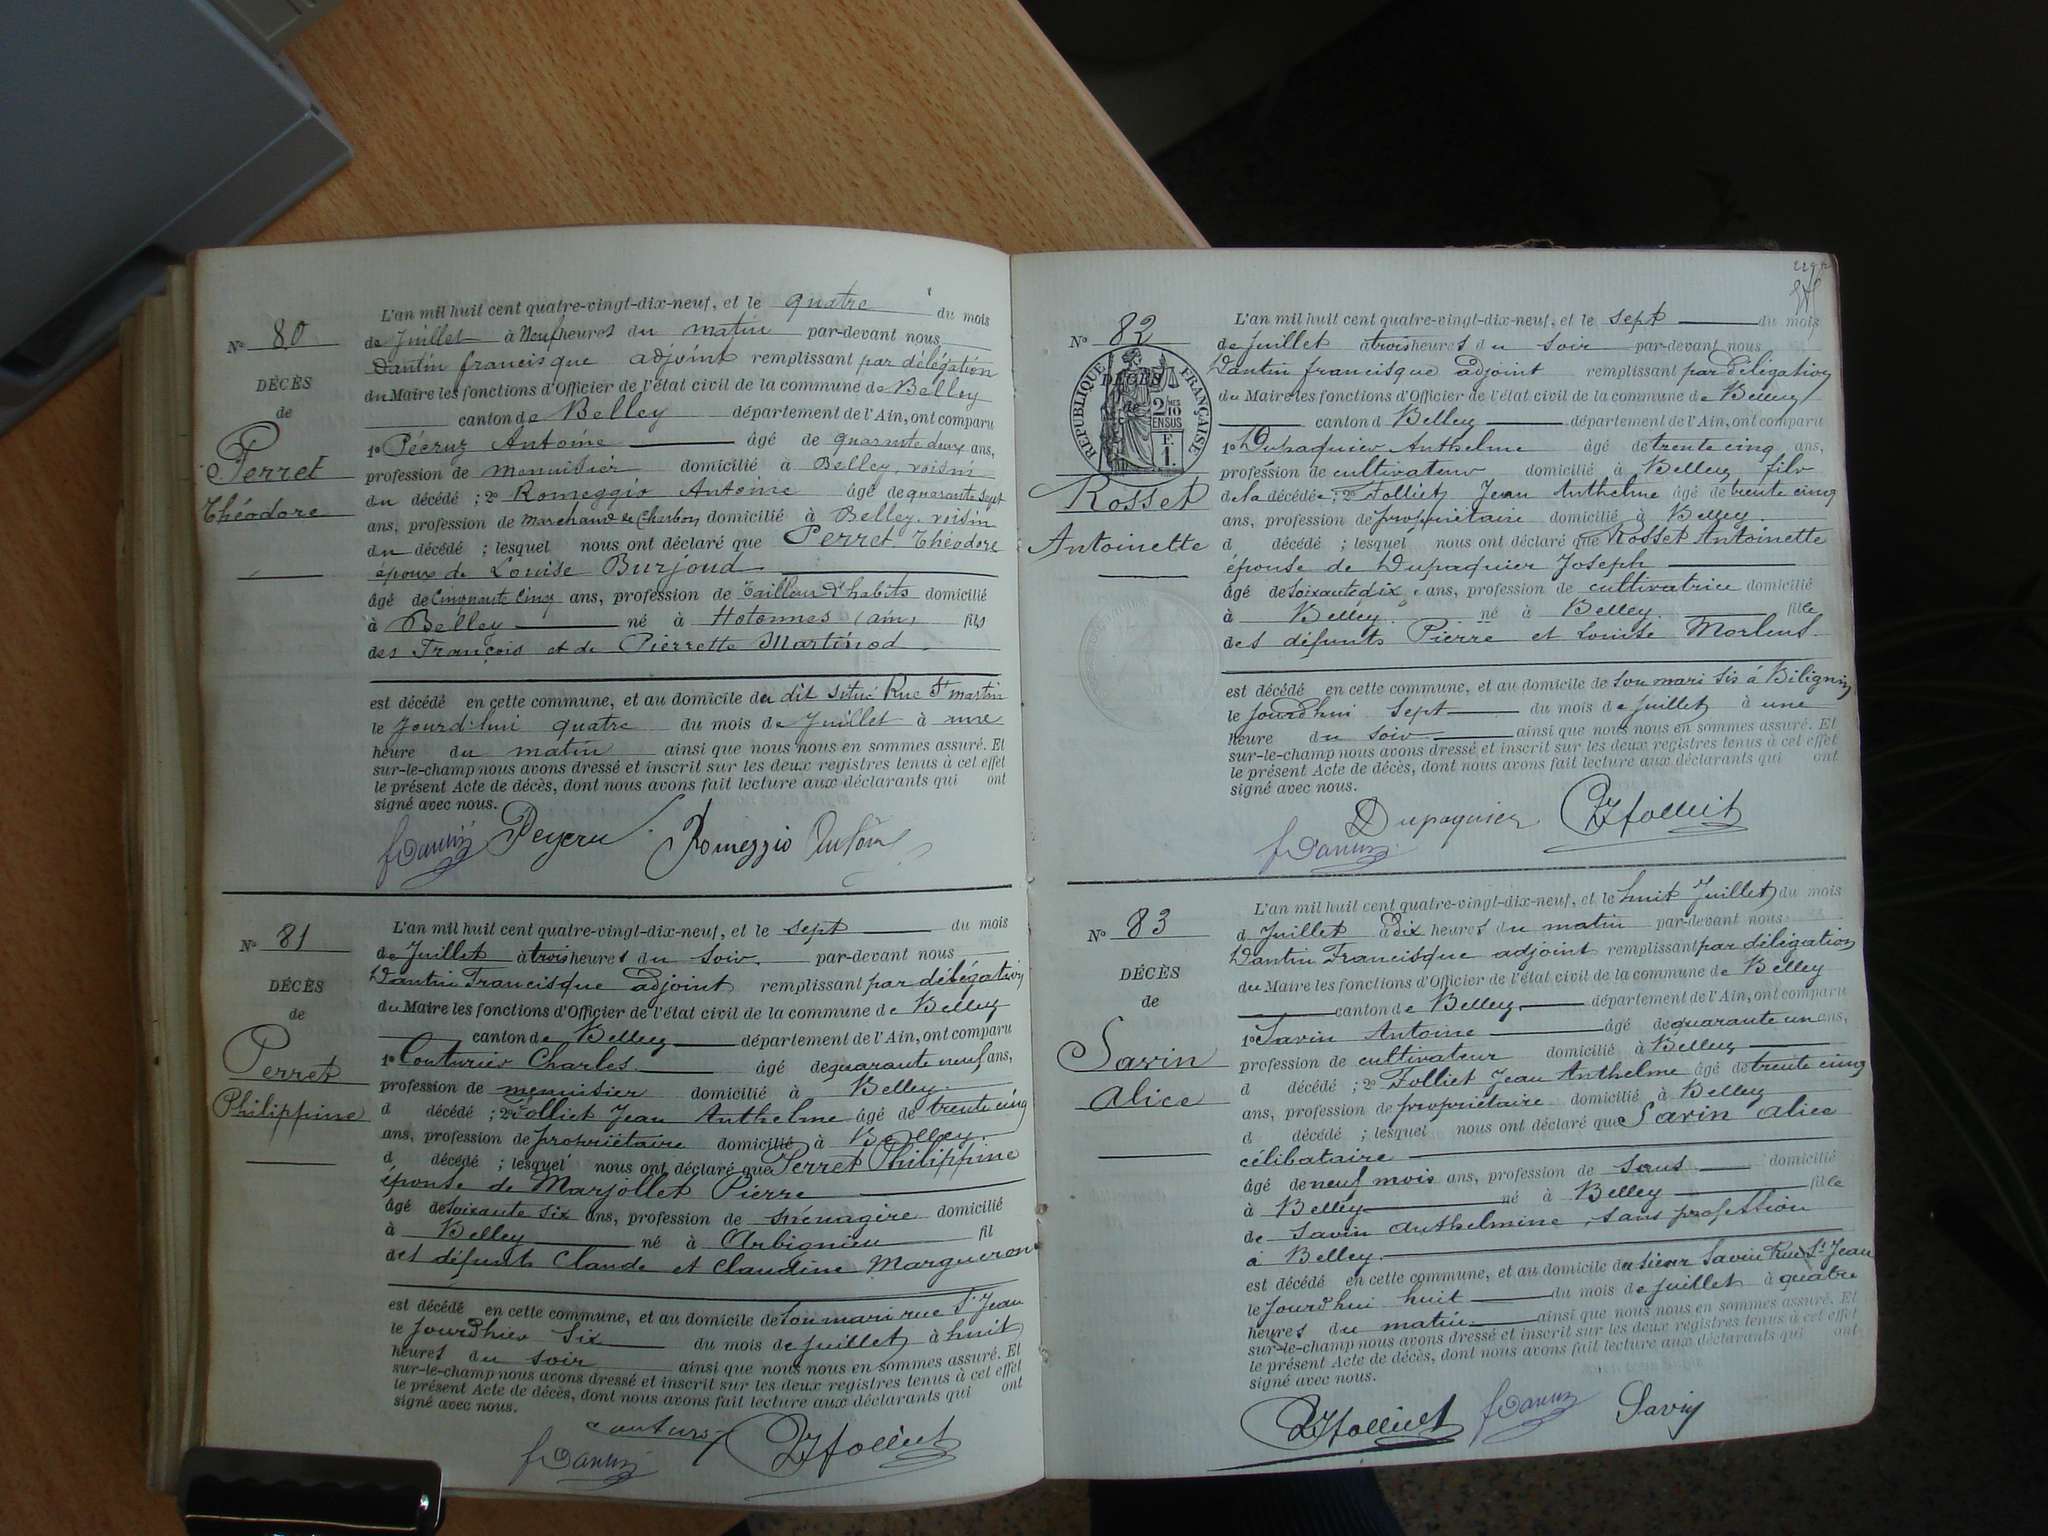 L'an mil huit cent quatre-vingt-dix-neuf, et le quatre du mois
Nº 80
de Juillet à Neuf heures du matin par-devant nous
Dantin francisque adjoint remplissant par délégation
DÉCÈS
du Maire les fonctions d'Officier de l'état civil de la commune de Belley
de
canton de Belley département de l'Ain, ont comparu
Perret
Théodore
1º Pécruz Antoine âgé de quarante deux ans,
profession de menuisier domicilié à Belley, voisin
du décédé ; 2º Romeggio Antoine âgé de quarante sept
ans, profession de Marchand de Charbon domicilié à Belley, voisin
du décédé ; lesquel nous ont déclaré que Perret Théodore
époux de Louise Burjoud
âgé de Cinquante Cinq ans, profession de Tailleur d'habits domicilié
à Belley né à Hotonnes (ain) fils
des François et de Pierrette Martinod
est décédé en cette commune, et au domicile du dit situé Rue St martin
le Jourd'hui quatre du mois de Juillet à une
heure du matin ainsi que nous nous en sommes assuré. Et
sur-le-champ nous avons dressé et inscrit sur les deux registres tenus à cet effet
le présent Acte de décès, dont nous avons fait lecture aux déclarants qui ont
signé avec nous.
fDantin Peycru Romeggio Antoine
L'an mil huit cent quatre-vingt-dix-neuf, et le sept du mois
Nº 81
de Juillet à trois heures du soir par-devant nous
Dantin Francisque adjoint remplissant par délégation
DÉCÈS
du Maire les fonctions d'Officier de l'état civil de la commune de Belley
de
canton de Belley département de l'Ain, ont comparu
Perret
Philippine
1º Couturier Charles âgé de quarante neuf ans,
profession de menuisier domicilié à Belley
d décédé ; 2º Folliet Jean Anthelme âgé de trente cinq
ans, profession de propriétaire domicilié à Belley
d décédé ; lesquel nous ont déclaré que Perret Philippine
épouse de Marjollet Pierre
âgé de soixante six ans, profession de ménagère domicilié
à Belley né à Arbignieu fil
des défunts Claude et Claudine Margueron
est décédé en cette commune, et au domicile de son mari rue St Jean
le jourd'hier six du mois de juillet à huit
heures du soir ainsi que nous nous en sommes assuré. Et
sur-le-champ nous avons dressé et inscrit sur les deux registres tenus à cet effet
le présent Acte de décès, dont nous avons fait lecture aux déclarants qui ont
signé avec nous.
fDantin JAfolliet
L'an mil huit cent quatre-vingt-dix-neuf, et le sept du mois
Nº 82
de Juillet à trois heures du soir par-devant nous
Dantin francisque adjoint remplissant par délégation
RÉPUBLIQUE FRANÇAISE
DÉCÈS
2/10MES EN SUS
F. 1.
du Maire les fonctions d'Officier de l'état civil de la commune de Belley
canton d Belley département de l'Ain, ont comparu
Rosset
Antoinette
1º Dupaquier Anthelme âgé de trente cinq ans,
profession de cultivateur domicilié à Belley fils
de la décédée ; 2º Folliet Jean Anthelme âgé de trente cinq
ans, profession de propriétaire domicilié à Belley
d décédé ; lesquel nous ont déclaré que Rosset Antoinette
épouse de Dupaquier Joseph
âgé de soixante dix ans, profession de cultivatrice domicilié
à Belley né à Belley fille
des défunts Pierre et Louise
est décédé en cette commune, et au domicile de son mari sis à Bilignin
le jourd'hui sept du mois de juillet à une
heure du soir ainsi que nous nous en sommes assuré. Et
sur-le-champ nous avons dressé et inscrit sur les deux registres tenus à cet effet
le présent Acte de décès, dont nous avons fait lecture aux déclarants qui ont
signé avec nous.
fDantin Dupaquier JAfolliet
L'an mil huit cent quatre-vingt-dix-neuf, et le huit Juillet du mois
Nº 83
d Juillet à dix heures du matin par-devant nous
Dantin Francisque adjoint remplissant par délégation
DÉCÈS
du Maire les fonctions d'Officier de l'état civil de la commune de Belley
de
canton de Belley département de l'Ain, ont comparu
Savin
Alice
1º Savin Antoine âgé de quarante un ans,
profession de cultivateur domicilié à Belley
d décédé ; 2º Folliet Jean Anthelme âgé de trente cinq
ans, profession de propriétaire domicilié à Belley
d décédé ; lesquel nous ont déclaré que Savin Alice
célibataire
âgé de neuf mois ans, profession de sans domicilié
à Belley né à Belley fille
de Savin Anthelmine, sans profession
à Belley
est décédé en cette commune, et au domicile du sieur Savin Rue St Jean
le jourd'hui huit du mois de juillet à quatre
heures du matin ainsi que nous nous en sommes assuré. Et
sur-le-champ nous avons dressé et inscrit sur les deux registres tenus à cet effet
le présent Acte de décès, dont nous avons fait lecture aux déclarants qui ont
signé avec nous.
JAfolliet fDantin Savin